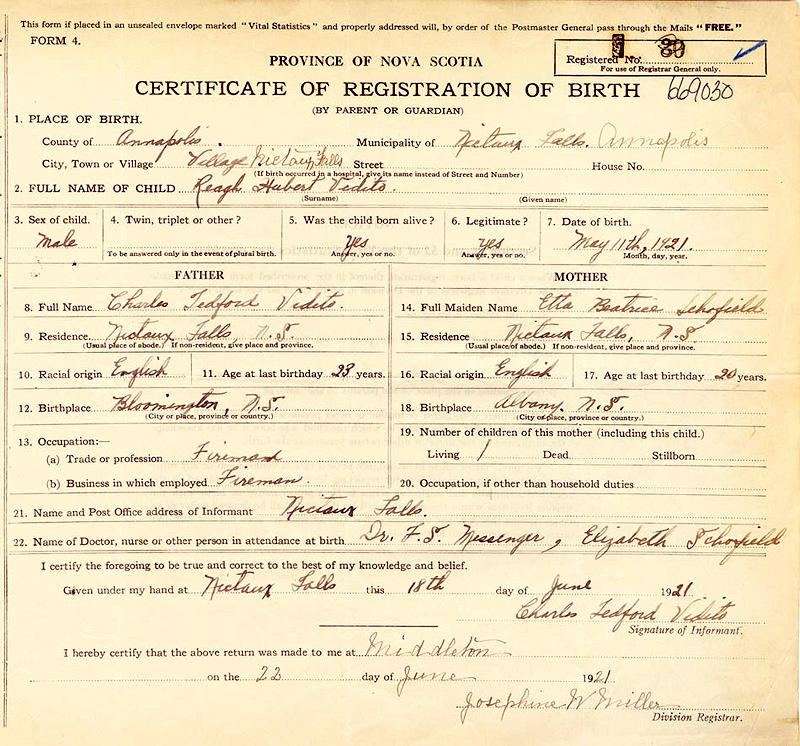 This form if placed in an unsealed envelope marked "Vital Statistics" and properly addressed will, by order of the Postmaster General pass through the Mails "FREE."
FORM 4.
PROVINCE OF NOVA SCOTIA
Registered No.
For use of Registrar General only.
CERTIFICATE OF REGISTRATION OF BIRTH 669030
(BY PARENT OR GUARDIAN)
1. PLACE OF BIRTH.
County of Annapolis. Municipality of Nictaux Falls. Annapolis
City, Town or Village Village Nictaux Falls Street House No.
(If birth occurred in a hospital, give its name instead of Street and Number)
2. FULL NAME OF CHILD Reagh Hubert Vidito.
(Surname) (Given name)
3. Sex of child. 4. Twin, triplet or other? 5. Was the child born alive? 6. Legitimate? 7. Date of birth.
Male yes yes May 11th, 1921.
To be answered only in the event of plural birth. Answer, yes or no. Answer, yes or no. Month, day, year.
FATHER MOTHER
8. Full Name Charles Tedford Vidito. 14. Full Maiden Name Etta Beatrice Schofield
9. Residence. Nictaux Falls, N.S. 15. Residence Nictaux Falls, N.S
(Usual place of abode.) If non-resident, give place and province. (Usual place of abode.) If non-resident, give place and province.
10. Racial origin English 11. Age at last birthday 23 years. 16. Racial origin English 17. Age at last birthday 20 years.
12. Birthplace Bloomington, N.S. 18. Birthplace Albany. N.S.
(City or place, province or country.) (City or place, province or country.)
13. Occupation:— 19. Number of children of this mother (including this child.)
(a) Trade or profession Fireman Living 1 Dead Stillborn
(b) Business in which employed Fireman. 20. Occupation, if other than household duties
21. Name and Post Office address of Informant Nictaux Falls.
22. Name of Doctor, nurse or other person in attendance at birth Dr. F. S. Messenger, Elizabeth Schofield
I certify the foregoing to be true and correct to the best of my knowledge and belief.
Given under my hand at Nictaux Falls this 18th day of June 1921
Charles Tedford Vidito
Signature of Informant.
I hereby certify that the above return was made to me at Middleton
on the 22 day of June 1921
Josephine W Miller
Division Registrar.